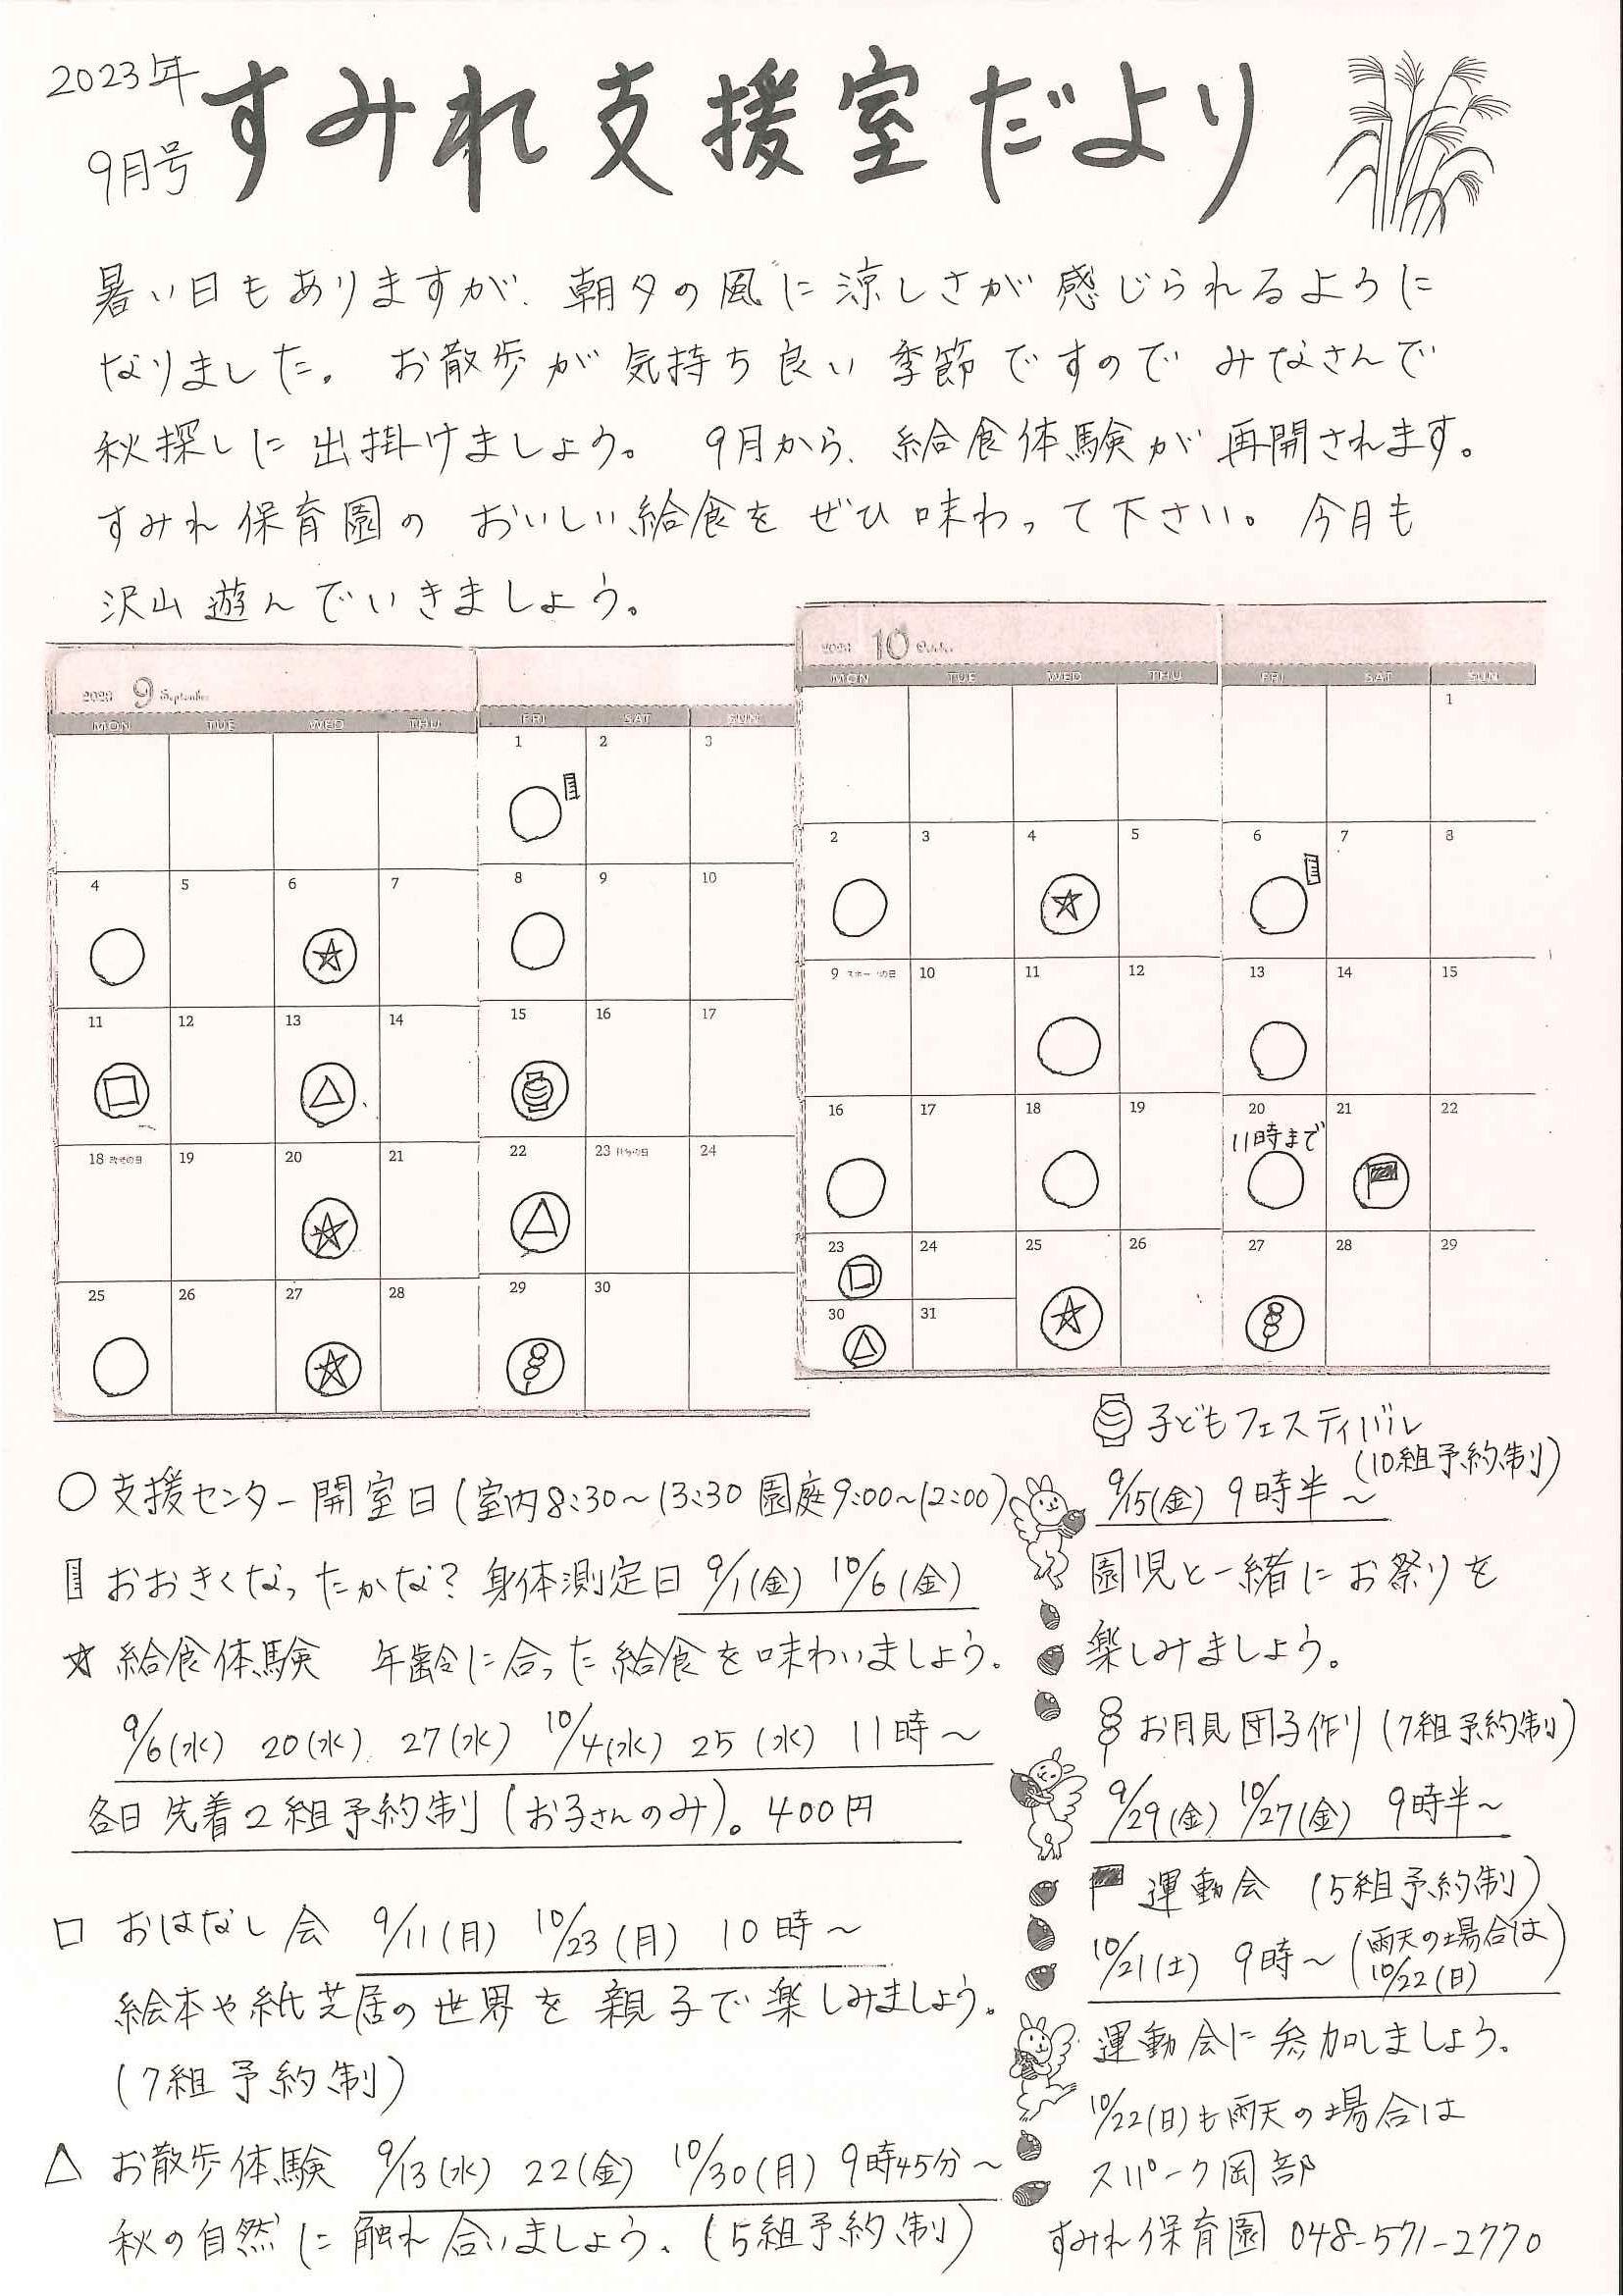 2023年
9月号
すみれ支援室だより
暑い日もありますが、朝夕の風に涼しさが感じられるように
なりました。お散歩が気持ち良い季節ですのでみなさんで
秋探しに出掛けましょう。 9月から、給食体験が再開されます。
すみれ保育園の おいしい給食を ぜひ味わって下さい。今月も
沢山遊んでいきましょう。
2023 9 September
MON TUE WED THU FRI SAT SUN
1 2 3
4 5 6 7 8 9 10
11 12 13 14 15 16 17
18 敬老の日 19 20 21 22 23 秋分の日 24
25 26 27 28 29 30
2023 10 October
MON TUE WED THU FRI SAT SUN
1
2 3 4 5 6 7 8
9 スポーツの日 10 11 12 13 14 15
16 17 18 19 20 21 22
11時まで
23 24 25 26 27 28 29
30 31
○ 支援センター開室日(室内8:30～13:30 園庭9:00～12:00)
おおきくなったかな? 身体測定日 9/1(金) 10/6(金)
☆ 給食体験 年齢に合った給食を味わいましょう。
9/6(水) 20(水) 27(水) 10/4(水) 25(水) 11時～
各日 先着2組予約制(お子さんのみ)。400円
□ おはなし会 9/11(月) 10/23(月) 10時～
絵本や紙芝居の世界を親子で楽しみましょう。
(7組予約制)
△ お散歩体験 9/13(水) 22(金) 10/30(月) 9時45分～
秋の自然に触れ合いましょう。(5組予約制)
子どもフェスティバル
(10組予約制)
9/15(金) 9時半～
園児と一緒にお祭りを
楽しみましょう。
お月見団子作り(7組予約制)
9/29(金) 10/27(金) 9時半～
運動会 (5組予約制)
10/21(土) 9時～(雨天の場合は
10/22(日))
運動会に参加しましょう。
10/22(日)も雨天の場合は
スパーク岡部
すみれ保育園 048-571-2770